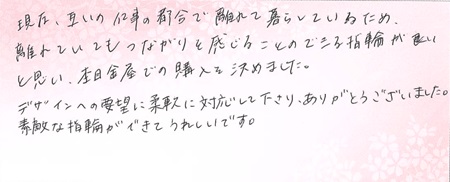 現在、互いの仕事の都合で離れて暮らしているため、
離れていてもつながりを感じることのできる指輪が良い
と思い、本日金座での購入を決めました。
デザインへの要望に柔軟に対応して下さり、ありがとうございました。
素敵な指輪ができてうれしいです。